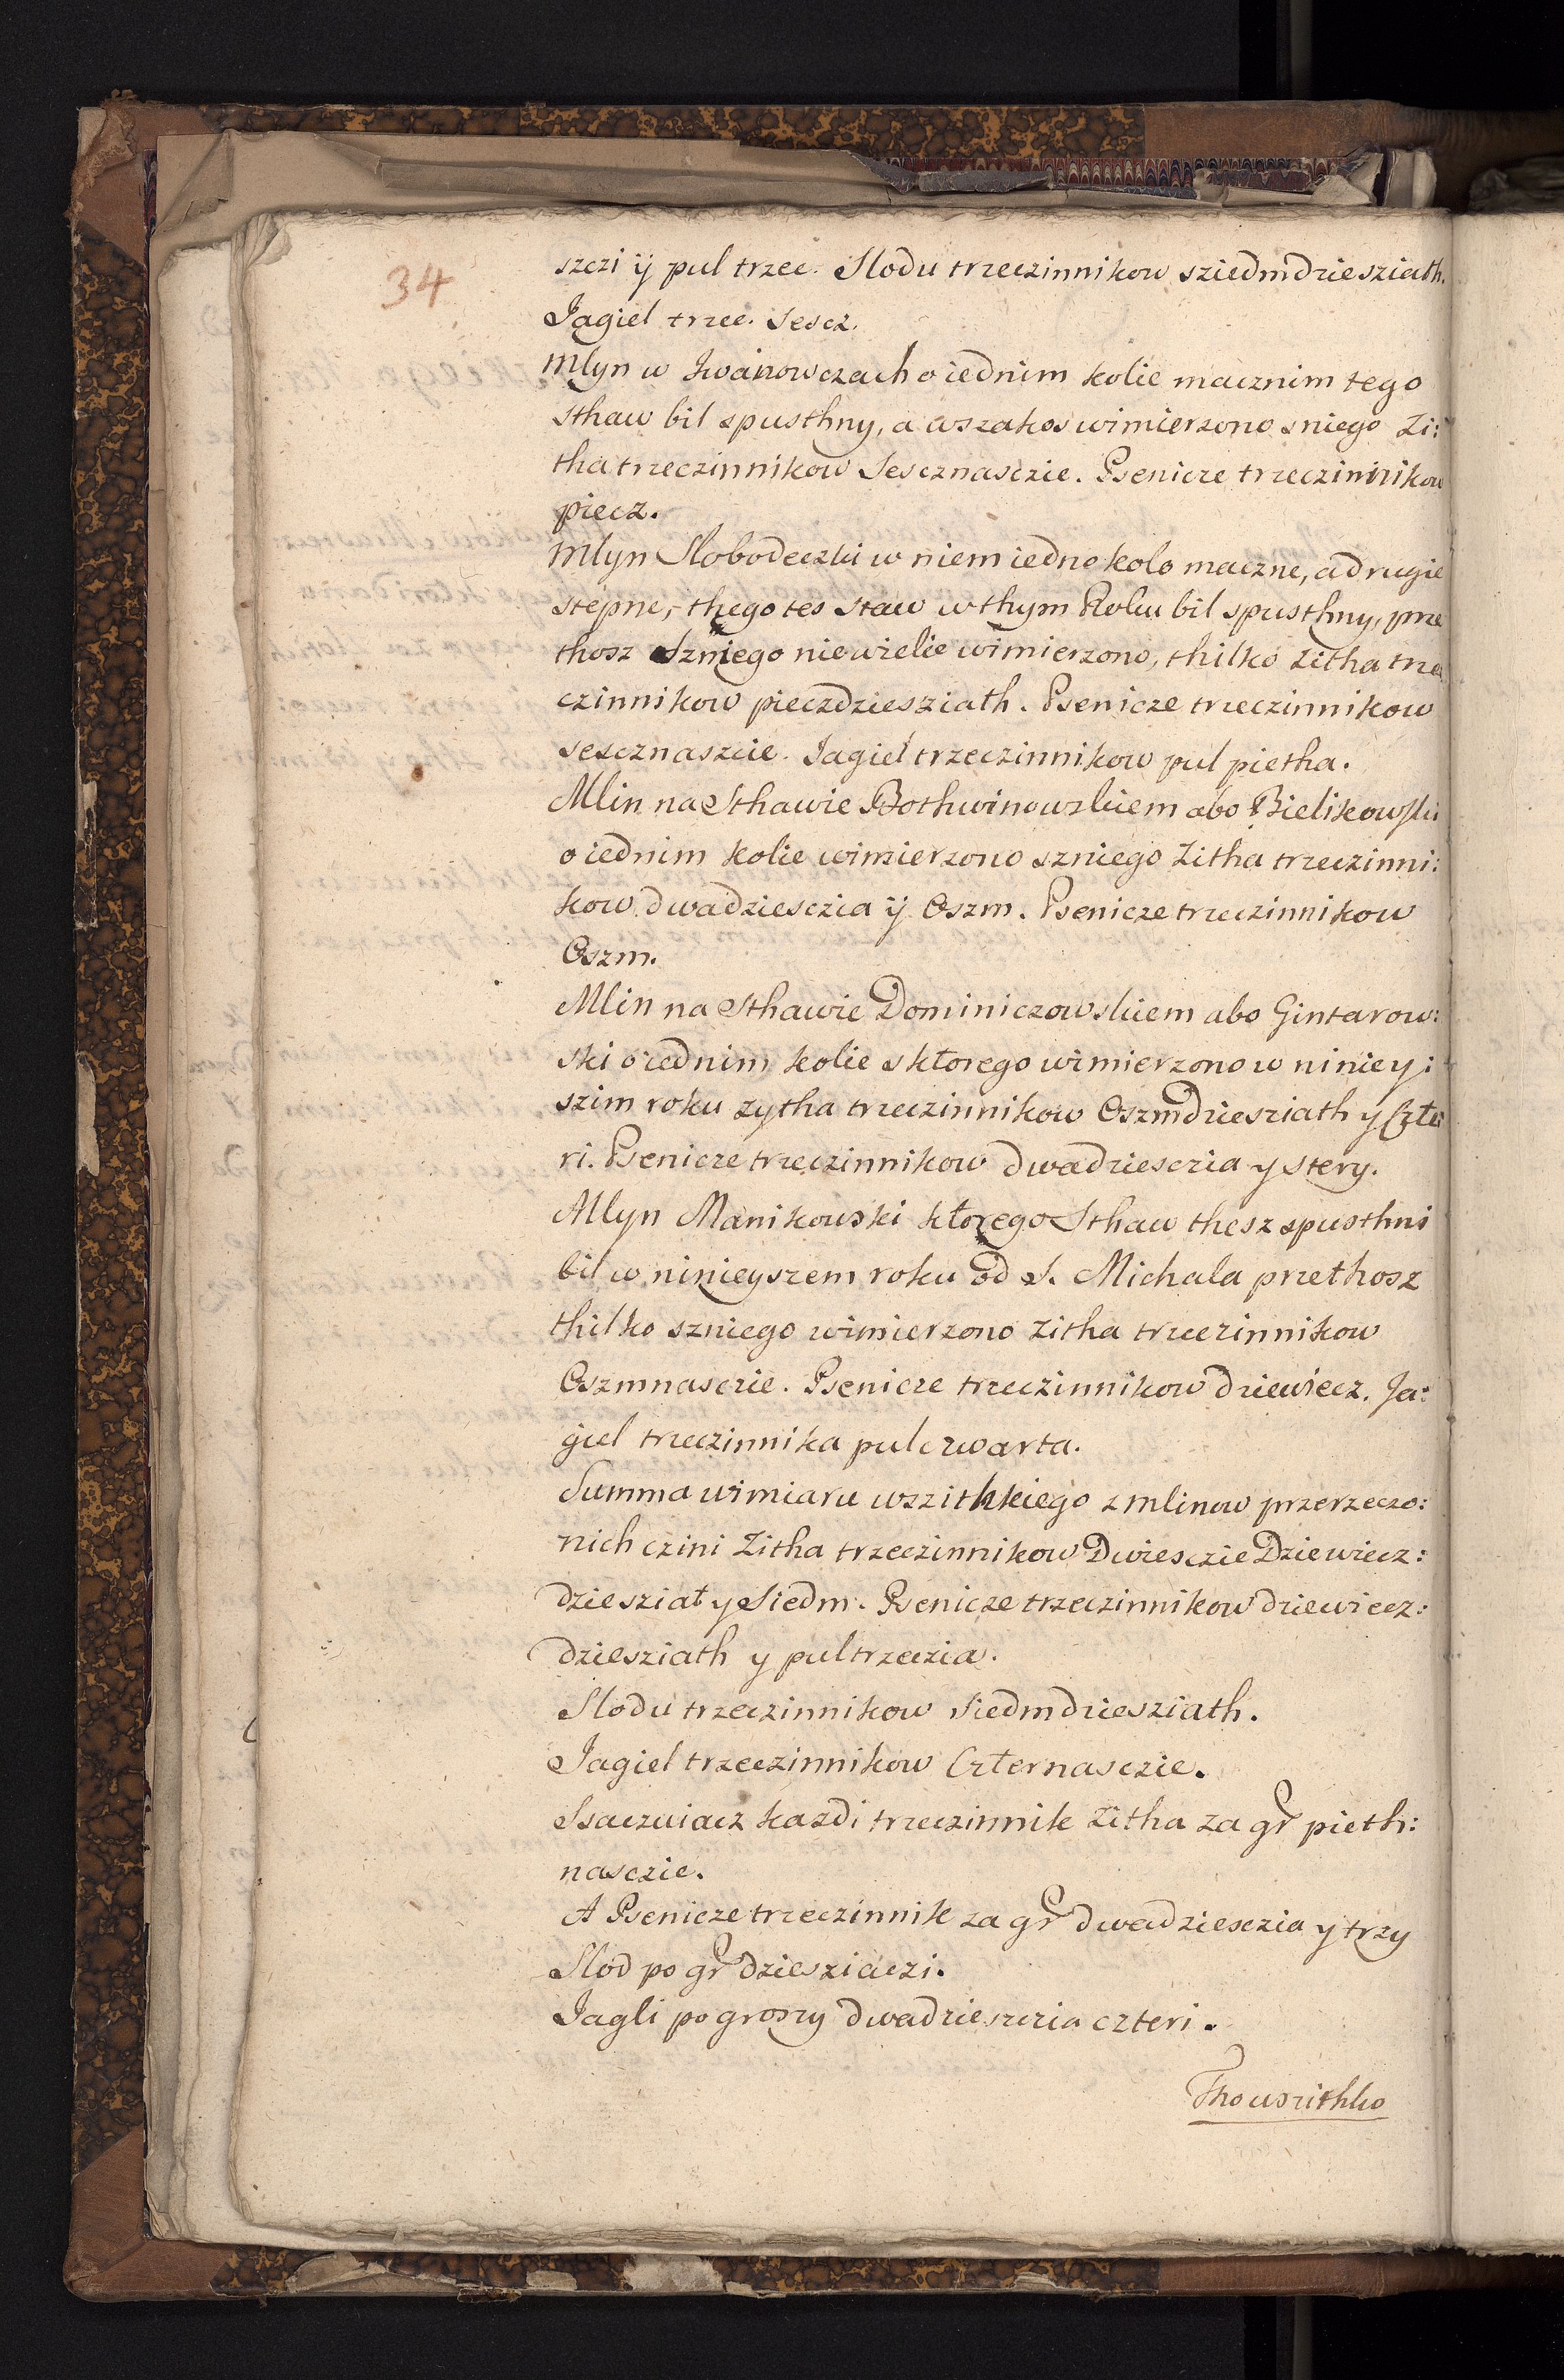 34
szczi ÿ pul trzec. Slodu trzeczinnikow sziedmdziesziath.
Jagiel trzec. Sescz.
Mlyn w Iwanowczach o iednim kolie macznim tego
sthaw bil spusthny, a wszakos wimierzono sniego Zi:
tha trzeczinnikow Sescznasczie. Psenicze trzeczinnikow
piecz.
Mlyn Slobodeczki w niem iedno kolo maczne, a drugie
stepne, thego tes staw w thym Roku bil spusthny, prze
thosz Szniego niewielie wimierzono, thilko Zitha trze
czinnikow pieczdziesziath. Psenicze trzeczinnikow
sescznaszcie. Jagiel trzeczinnikow pul pietha.
Mlin na Sthawie Bothwinowskiem abo Bielikowski
o iednim kolie wimierzono szniego Zitha trzeczinni:
kow dwadziesczia ÿ Oszm. Psenicze trzeczinnikow
Oszm.
Mlin na Sthawie Dominiczowskiem abo Gintarow:
ski o iednim kolie s ktorego wimierzono w niniey:
szim roku zytha trzeczinnikow Oszmdziesziath y Czte
ri. Psenicze trzeczinnikow dwadziesczia y stery.
Mlyn Manikowski ktorego Sthaw thesz spusthni
bil w ninieyszem roku od S. Michala przethosz
thilko szniego wimierzono Zitha trzeczinnikow
Oszmnasczie. Psenicze trzeczinnikow dziewiecz. Ja:
giel trzeczinnika pulczwarta.
Summa wimiaru wszithkiego z mlinow przerzeczo:
nich czini Zitha trzeczinnikow Dwiesczie Dziewiecz:
dziesziat y Siedm. Psenicze trzeczinnikow dziewiecz:
dziesziath y pultrzeczia.
Slodu trzeczinnikow Siedmdziesziath.
Jagiel trzeczinnikow Czternasczie.
Ssaczuiacz kazdi trzeczinnik Zitha za gr pieth:
nasczie.
A Psenicze trzeczinnik za gr dwadziesczia y trzy
Slod po gr dziesziaczi.
Jagli po groszy dwadzieszczia czteri.
Tho wszithko